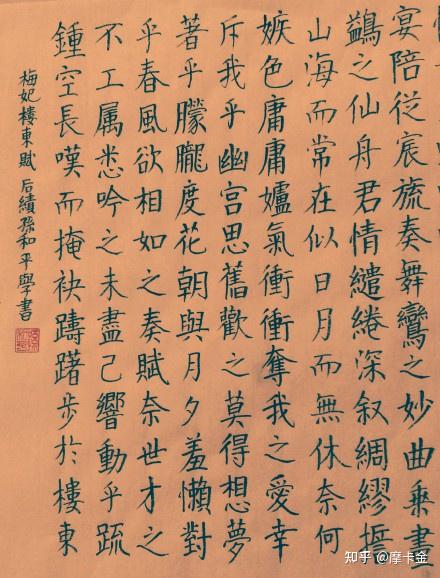 宴陪從宸旒奏舞鸞之妙曲乗畫
鷁之仙舟君情繾綣深叙綢繆
山海而常在似日月而無休奈何
嫉色庸庸氣衝衝奪我之愛幸
斥我乎幽宫思舊歡之莫得想夢
著乎朦朧度花朝與月夕羞懶對
乎春風欲相如之奏賦奈世才之
不工属悉吟之未盡己響動乎疏
鍾空長嘆而掩袂躊躇步於樓東
梅妃樓東賦 后績孫和平學書
知乎 @摩卡金